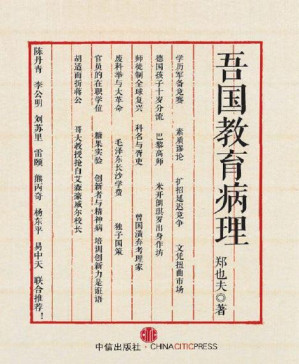 吾国教育病理
郑也夫◎著
学历军备竞赛 素质谬论 扩招延迟竞争 文凭扭曲市场
德国孩子十岁分流 巴黎高师 米开朗淇罗出身作坊
师徒制全球复兴 科名与胥吏 曾国藩弃考理家
废科举与大革命 毛泽东长沙学费 独子国策
官员的在职学位 糖果实验 创新者与精神病 培训创新力是诳语
胡适面折蒋公 哥大教授抢白艾森豪威尔校长
陈丹青 李公明 刘苏里 雷颐 熊丙奇 杨东平 易中天 联合推荐！
中信出版社·CHINACITICPRESS